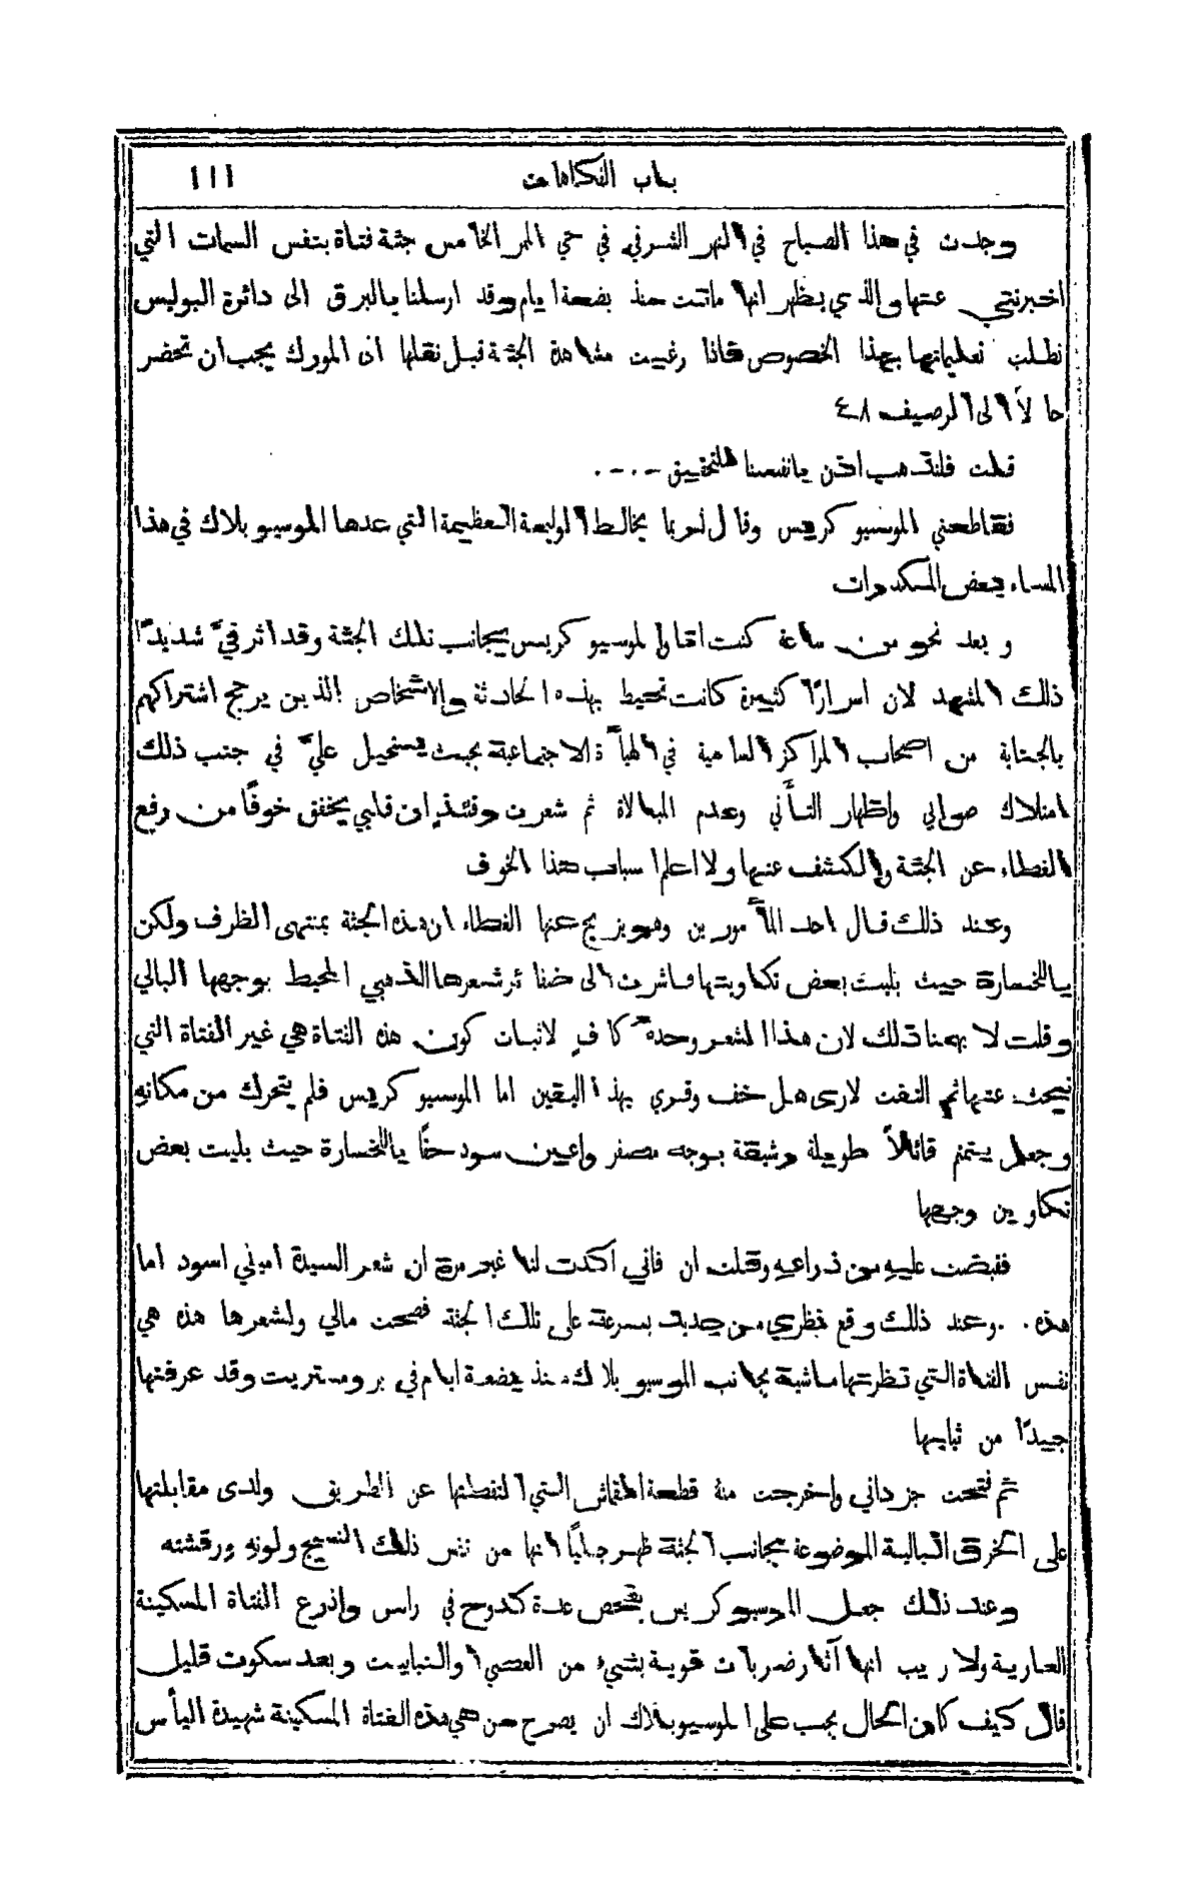 باب الفكاهات ١١١
وجدت في هذا الصباح في النهر الشرقي في حي الممر الخامس جثة فتاة بنفس السمات التي
اخبرتني عنها والذي يظهر انها ماتت منذ بضعة ايام وقد ارسلنا بالبرق الى دائرة البوليس
نطلب تعليماتها بهذا الخصوص فاذا رغبت مشاهدة الجثة قبل نقلها الى المورك يجب ان تحضر
حالاً الى الرصيف ٤٨
قلت فلنذهب اذن بانفسنا للتحقيق -٠-٠
فقاطعني الموسيو كريس وقال لعربما يخالط الوليمة العظيمة التي عدها الموسيو بلاك في هذا
المساء بعض المكدرات
وبعد نحو من ساعة كنت انا والموسيو كريس بجانب تلك الجثة وقد اثر فيَّ شديدًا
ذلك المشهد لان اسرارًا كثيرة كانت تحيط بهذه الحادثة والاشخاص الذين يرجح اشتراكهم
بالجناية من اصحاب المراكز السامية في الهيأة الاجتماعية بحيث يستحيل عليَّ في جنب ذلك
امتلاك صوابي واظهار التأني وعدم المبالاة ثم شعرت وقتئذٍ ان قلبي يخفق خوفًا من رفع
الغطاء عن الجثة والكشف عنها ولا اعلم اسباب هذا الخوف
وعند ذلك قال احد المأمورين وهو يزيح عنها الغطاء ان هذه الجثة بمنتهى الظرف ولكن
يا للخسارة حيث بليت بعض تكاوينها فاشرت الى ضفائر شعرها الذهبي المحيط بوجهها البالي
وقلت لا يهمنا ذلك لان هذا الشعر وحده كافٍ لاثبات كون هذه الفتاة هي غير الفتاة التي
نبحث عنها ثم التفت لارى هل خف وقري بهذا اليقين اما الموسيو كريس فلم يتحرك من مكانه
وجعل يتمتم قائلاً طويلة رشيقة بوجه مصفر واعين سود حقًا يا للخسارة حيث بليت بعض
تكاوين وجهها
فقبضت عليه من ذراعيه وقلت ان فاني اكدت لنا غير مرة ان شعر السيدة اميلي اسود اما
هذه ٠ ٠ وعند ذلك وقع نظري من جديد بسرعة على تلك الجثة فصحت مالي ولشعرها هذه هي
نفس الفتاة التي نظرتها ماشية بجانب الموسيو بلاك منذ بضعة ايام في برومستريت وقد عرفتها
جيدًا من ثيابها
ثم فتحت جزداني واخرجت منه قطعة القماش التي التقطتها عن الطريق ولدى مقابلتها
على الخرق البالية الموضوعة بجانب الجثة ظهر جليًا انها من نفس ذلك النسيج ولونه ورقشته
وعند ذلك جعل الموسيو كريس يفحص عدة كدوح في راس واذرع الفتاة المسكينة
العارية ولا ريب انها آثار ضربات قوية بشيء من العصي والنبابيت وبعد سكوت قليل
قال كيف كان الحال يجب على الموسيو بلاك ان يصرح من هي هذه الفتاة المسكينة شهيدة اليأس